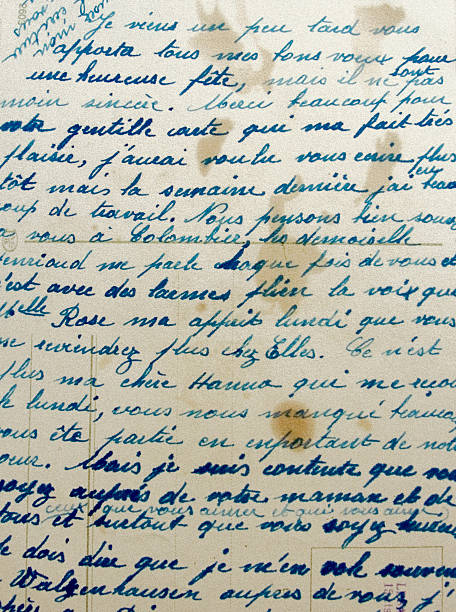 Je viens un peu tard vous
apporta tous mes bons voeux pour
une heureuse fête, mais il ne sont pas
moin sincère. Merci beaucoup pour
votre gentille carte qui ma fait très
plaisir, j'aurai voulu vous ecrire plus
tôt mais la semaine dernière j'ai eu beau
coup de travail. Nous pensons bien souve
a vous à Colombier, les demoiselle
enrioud me parle chaque fois de vous et
c'est avec des larmes plien la voix que
elle Rose ma apprit lundi que vous
ne reviendrez plus chez Elles. Ce n'est
plus ma chère Hanna qui me
lundi, vous nous manqué beauco
vous ête partie en emportant de not
coeur. Mais je suis contente que vou
soyez auprès de votre maman et de
ceux que vous aimer et qui vous aime
tous et surtout que vous soyez
dois dire que je m'en
Walzenhausen aupres de vous j'